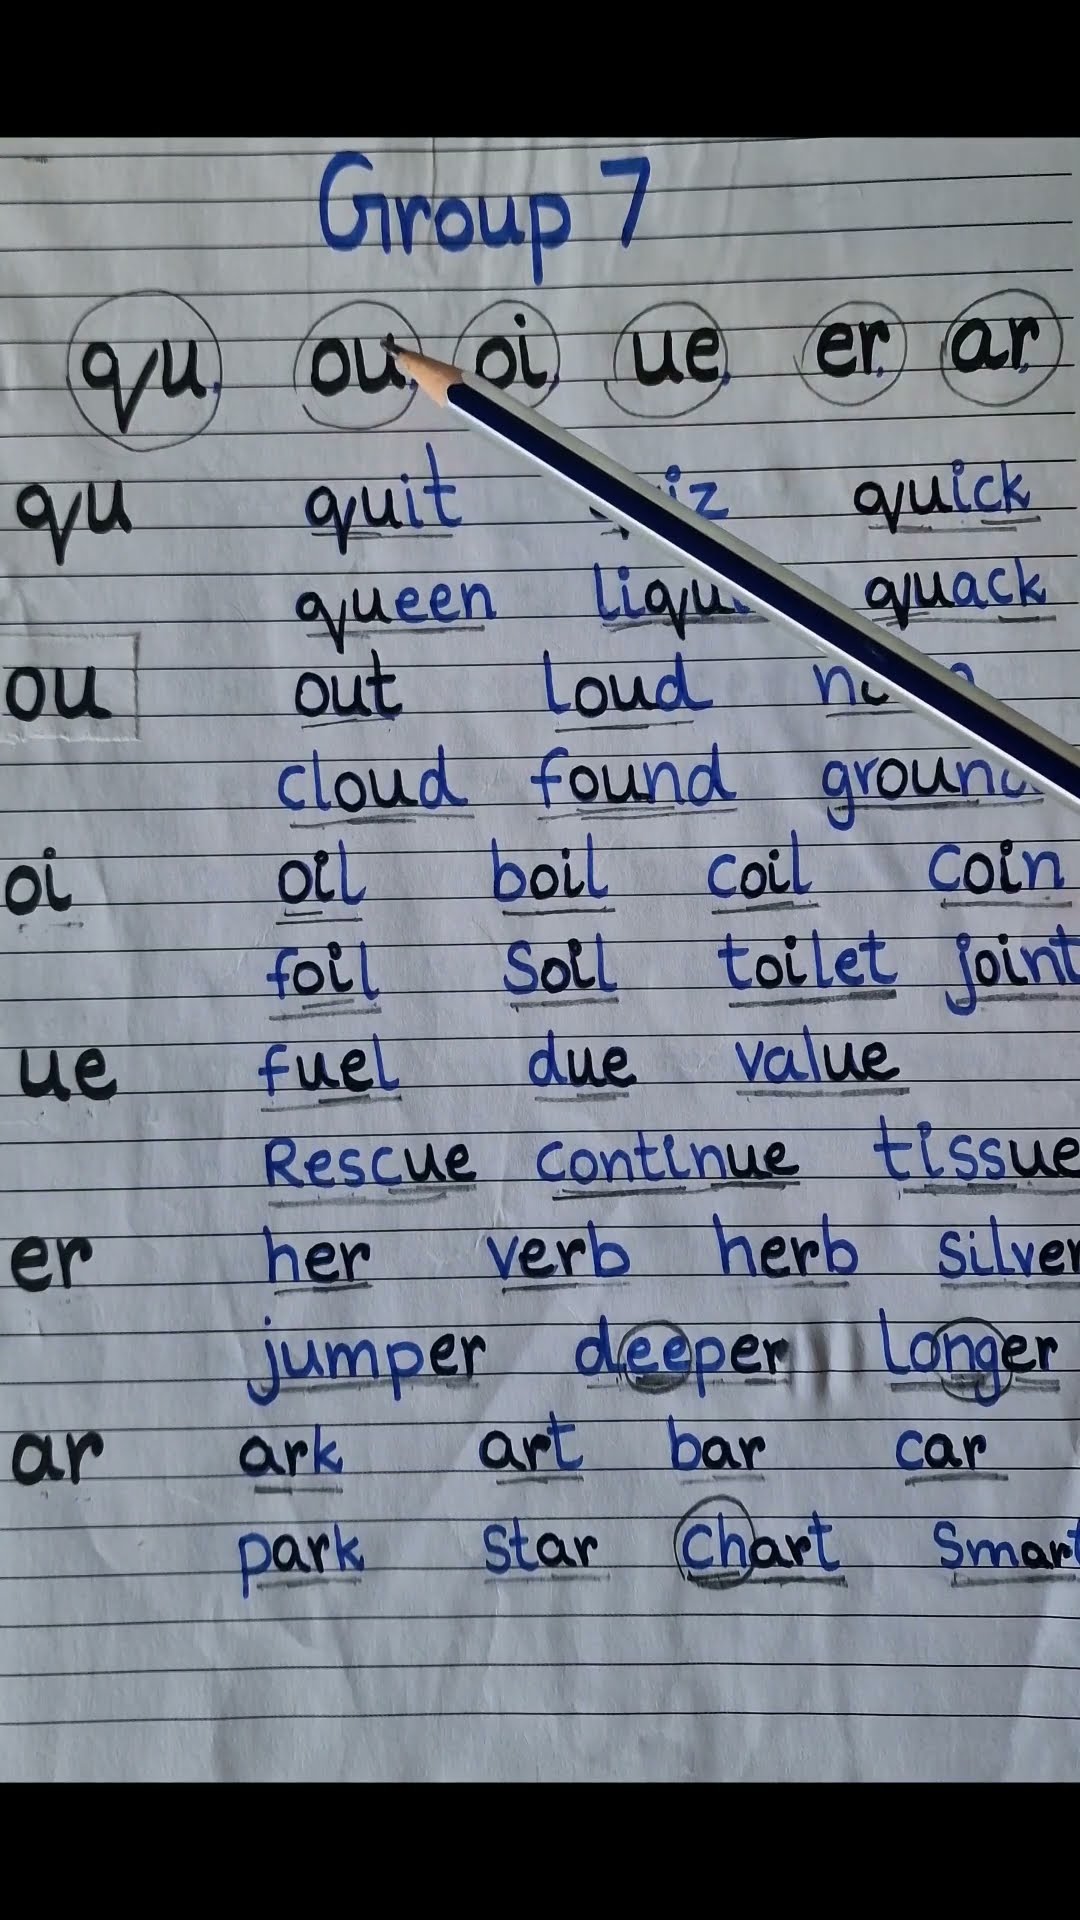 Group 7
qu, ou, oi, ue, er, ar.
qu quit quick
queen quack
ou out loud
cloud found ground
oi oil boil coil coin
foil Soil toilet joint
ue fuel due value
Rescue continue tissue
er her verb herb silver
jumper deeper longer
ar ark art bar car
park star chart Smart